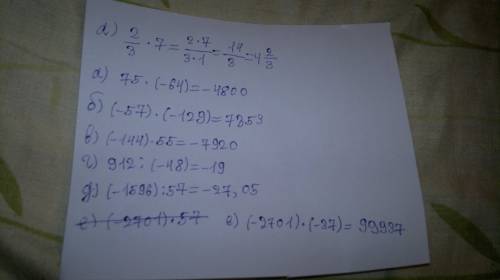 α) 2/3 · 7 = 2·7/3·1 = 14/3 = 4 2/3
а) 75 · (-64)=-4800
б) (-57) · (-129)=7353
в) (-144)·55=-7920
г) 912 : (-48)=-19
д) (-1596):57=-27,05
е) (-2701)·57 е) (-2701)·(-37)= 99937